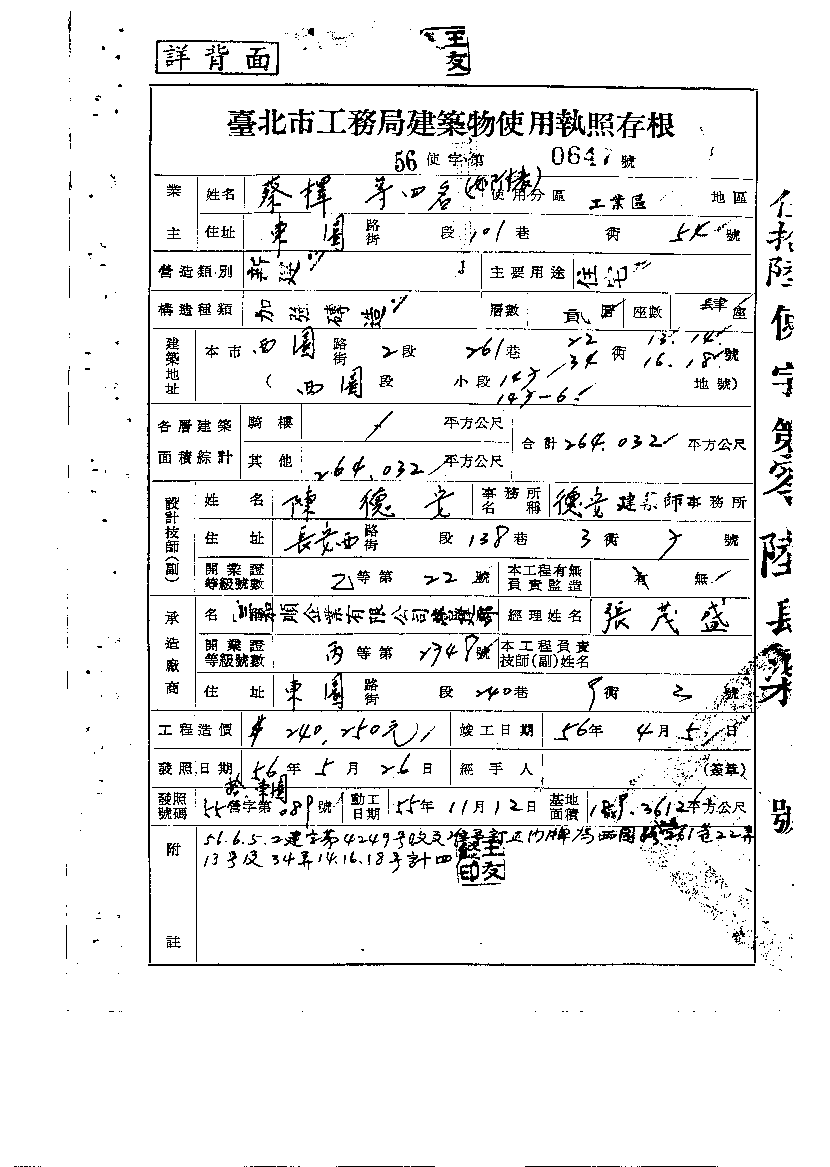 詳背面
王友
臺北市工務局建築物使用執照存根
56使字第 064 號
業主 姓名 蔡擇 等四名 使用分區 工業區 地區
住址 東園 路街 段 101巷 衖 號
營造類別 新建 主要用途 住宅
構造種類 加強磚造 層數 貳層 座數 肆座
建築地址 本市 西園 路街 2段 261巷 22 34 衖 13.14. 16.18. 號
( 西園 段 小段 地號)
各層建築面積綜計 騎樓 平方公尺 合計 264.032 平方公尺
其他 264.032 平方公尺
設計技師(副) 姓名 陳德安 事務所名稱 德安建築師事務所
住址 長安西 路街 段 138巷 3衖 號
開業證等級號數 乙等第 22 號 本工程有無負責監造 有 無
承造廠商 名 順企業有限公司 經理姓名 張茂盛
開業證等級號數 丙等第 2348 號 本工程負責技師(副)姓名
住址 東園 路街 段 240巷 衖 號
工程造價 $240,250元 竣工日期 56年 4月 5日
發照日期 56年 5月 26日 經手人 (簽章)
發照號碼 55營字第 089 號 動工日期 55年 11月 12日 基地面積 .3612 平方公尺
附註 56.6.5.2建字第4249號收文 門牌為西園 261巷22弄
13号及34弄14.16.18号計四
王友印
伍拾陸使字第零陸 號